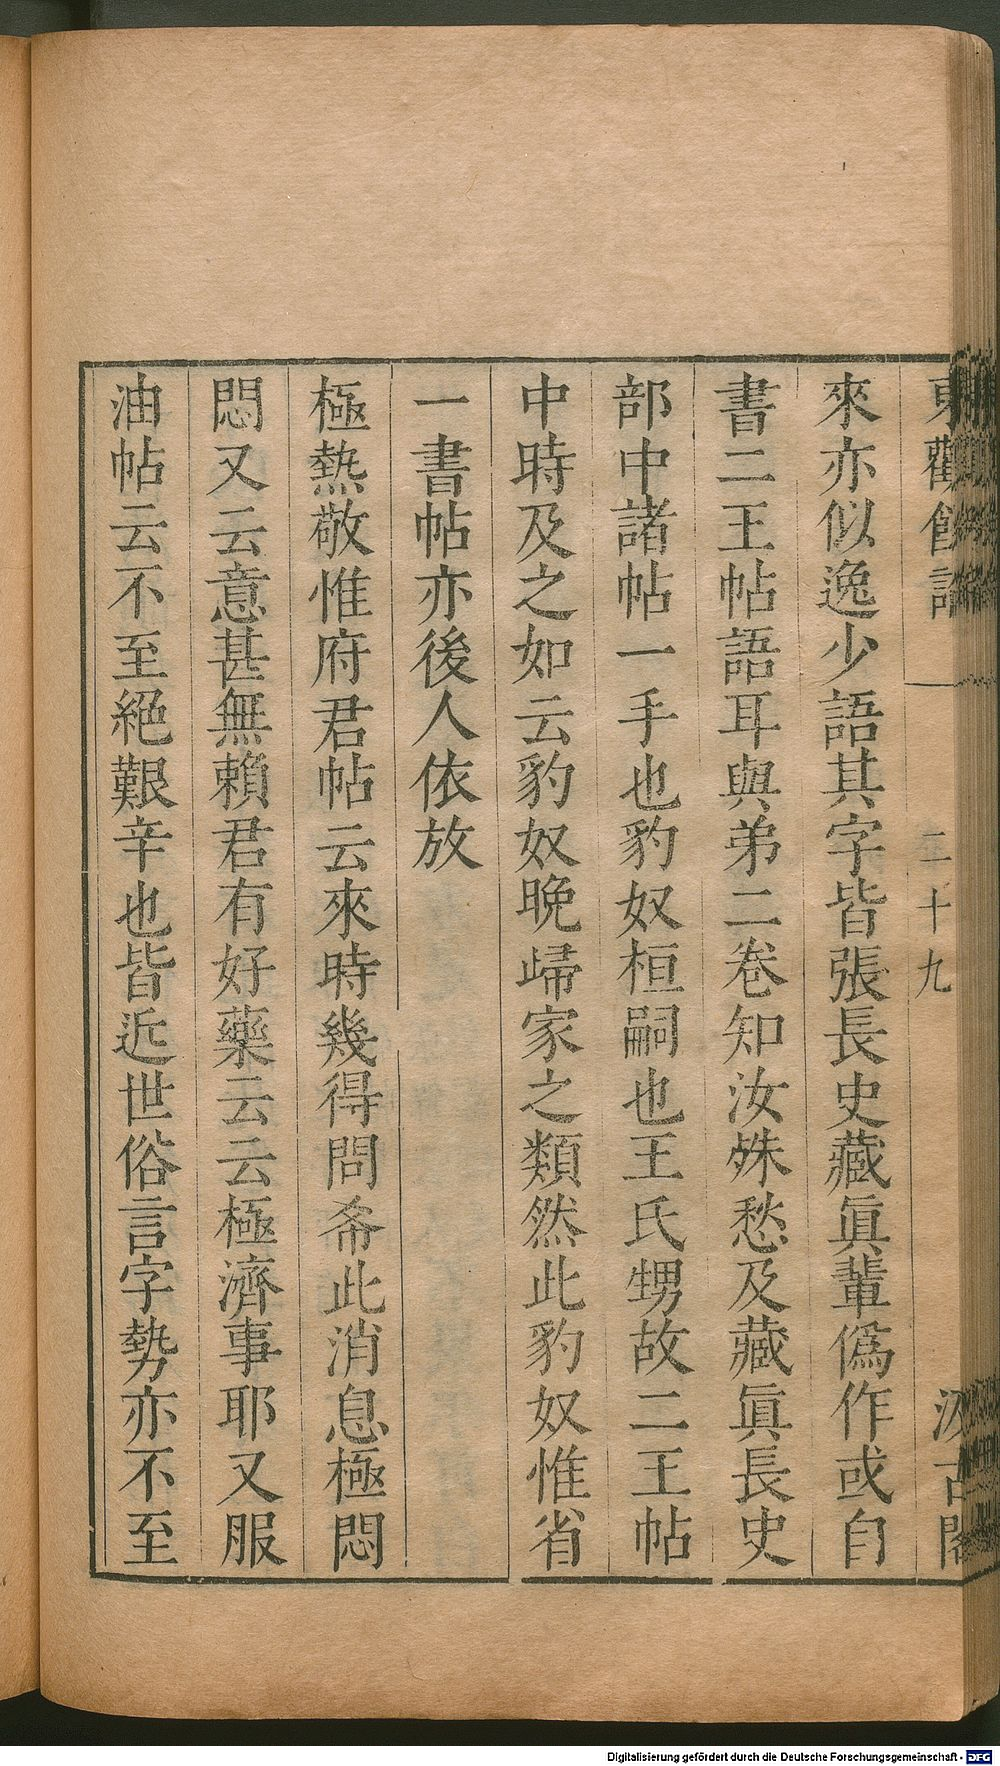 東觀餘論
二十九
汲古閣
來亦似逸少語其字皆張長史藏眞輩僞作或自
書二王帖語耳與弟二卷知汝殊愁及藏眞長史
部中諸帖一手也豹奴桓嗣也王氏甥故二王帖
中時及之如云豹奴晩歸家之類然此豹奴惟省
一書帖亦後人依放
極熱敬惟府君帖云來時幾得問希此消息極悶
悶又云意甚無賴君有好藥云云極濟事耶又服
油帖云不至絕艱辛也皆近世俗言字勢亦不至
Digitalisierung gefördert durch die Deutsche Forschungsgemeinschaft - DFG